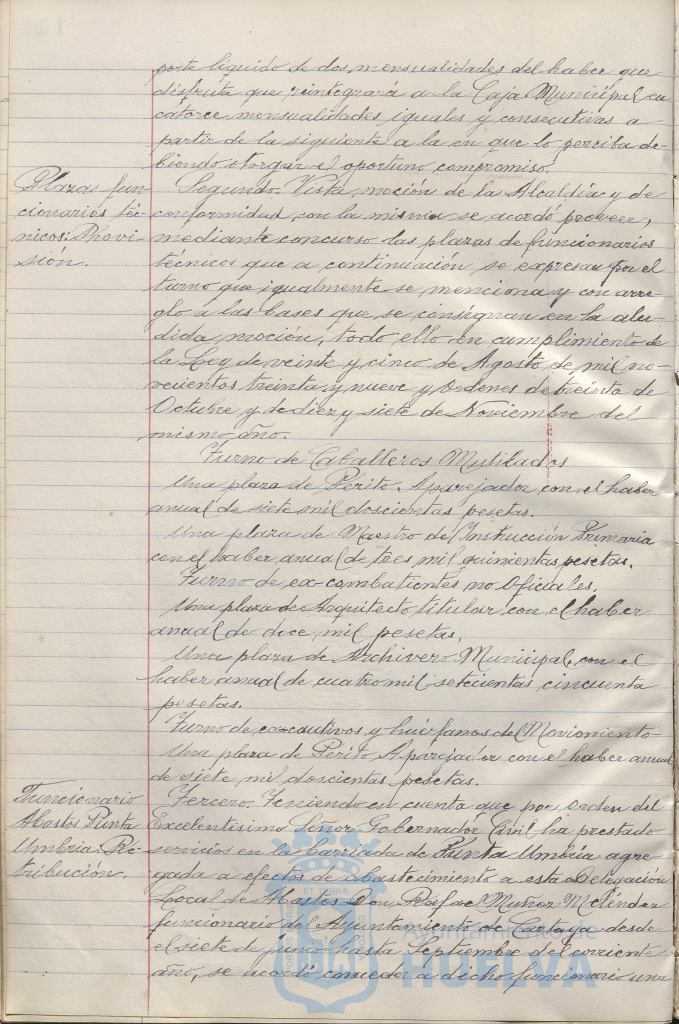 porte líquido de dos mensualidades del haber que
disfruta que reintegrará a la Caja Municipal en
catorce mensualidades iguales y consecutivas a
partir de la siguiente a la en que lo perciba de-
biendo otorgar el oportuno compromiso.
Plazas fun-
cionarios téc-
nicos: Provi-
sión.
Segundo. Vista moción de la Alcaldía y de
conformidad con la misma se acordó proveer,
mediante concurso las plazas de funcionarios
técnicos que a continuación se expresan por el
turno que igualmente se menciona y con arre-
glo a las bases que se consignan en la alu-
dida moción, todo ello en cumplimiento de
la Ley de veinte y cinco de Agosto de mil no-
vecientos treinta y nueve y Ordenes de treinta de
Octubre y de diez y siete de Noviembre del
mismo año.
Turno de Caballeros Mutilados
Una plaza de Perito Aparejador con el haber
anual de siete mil doscientas pesetas.
Una plaza de Maestro de Instrucción Primaria
con el haber anual de tres mil quinientas pesetas.
Turno de ex-combatientes no Oficiales.
Una plaza de Arquitecto titular con el haber
anual de doce mil pesetas.
Una plaza de Archivero Municipal, con el
haber anual de cuatro mil setecientas cincuenta
pesetas.
Turno de ex-cautivos y huérfanos del Movimiento-
Una plaza de Perito Aparejador con el haber anual
de siete mil doscientas pesetas.
Funcionario
Abastos Punta
Umbría: Re-
tribución.
Tercero. Teniendo en cuenta que por orden del
Excelentísimo Señor Gobernador Civil ha prestado
servicios en la barriada de Punta Umbría agre-
gada a efectos de abastecimiento a esta Delegación
Local de Abastos Don Rafael Muñoz Meléndez
funcionario del Ayuntamiento de Cartaya desde
el siete de junio hasta Septiembre del corriente
año, se acordó conceder a dicho funcionario una
ET TERRÆ
Ayuntamiento de
HUELVA